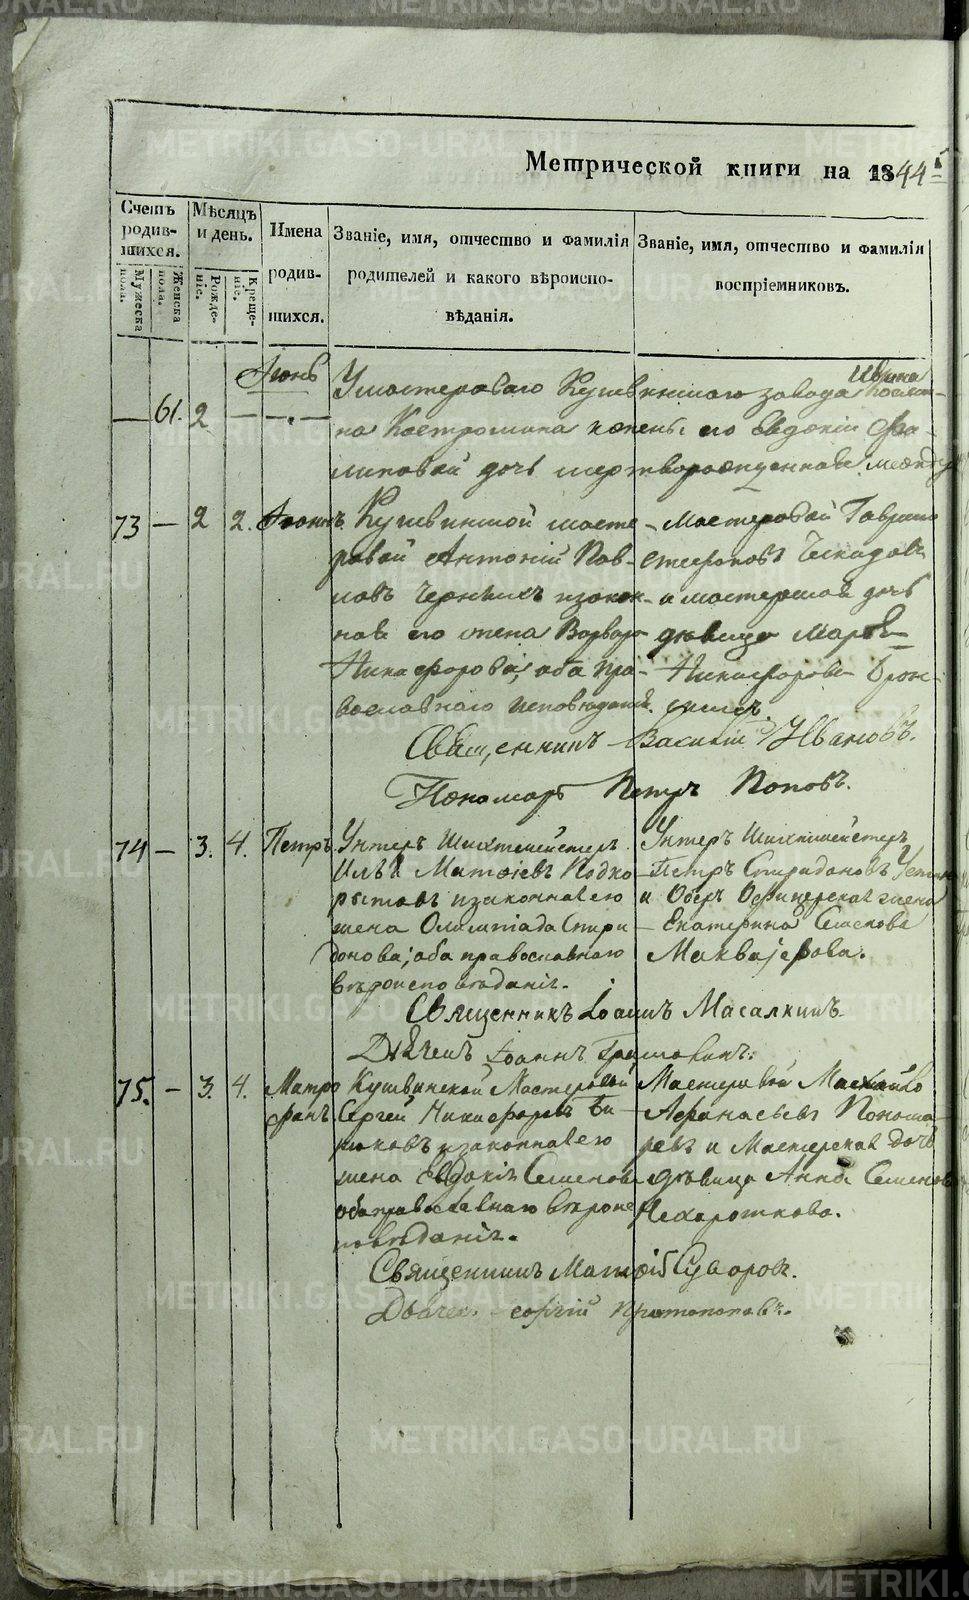 Метрической книги на 1844 г
Счетъ родив-шихся.
Мужеска пола.
Женска пола.
Мѣсяцъ и день.
Рожде-ніе.
Креще-ніе.
Имена родив-шихся.
Званіе, имя, отчество и фамилія родителей и какого вѣроиспо-вѣданія.
Званіе, имя, отчество и фамилія воспріемниковъ.
Іюнь
— 61. 2 — — . —
У мастероваго Кушвинскаго завода
на Костромина жены его Евдокіи Фи-
липовой дочь мертворожденная
73 — 2 2. Іоаннъ.
Кушвинской масте-
ровой Антоній Пав-
ловъ Черныхъ и закон-
ная его жена Варвара
Никифорова, оба пра-
вославнаго исповѣданія.
Мастеровой Гаврило
Стефановъ
и мастерская дочь
дѣвица Марѳа
Никифорова
Священникъ Василій Ивановъ.
Пономарь Петръ Поповъ.
74 — 3. 4. Петръ
Унтеръ Шихтмейстеръ
Илья Матѳіевъ Подко-
рытовъ и законная его
жена Олимпіада Спири-
донова; оба православнаго
вѣроисповѣданія.
Унтеръ Шихтмейстеръ
Петръ Спиридоновъ
и Оберъ Офицерская жена
Екатерина Семенова
Священникъ Іоаннъ Масалкинъ
Дьячекъ Іоаннъ
75. — 3. 4. Митро
фанъ
Кушвинской Мастеровой
Сергей Никифоровъ Би-
рюковъ и законная его
жена Евдокія Семенова
оба православнаго вѣроис
повѣданія.
Мастеровой Михайло
Афанасьевъ Понома-
ревъ и Мастерская дочь
дѣвица Анна Семенова
Священникъ Матѳій Суворовъ.
Дьячекъ Георгій Протопоповъ.
METRIKI.GASO-URAL.RU